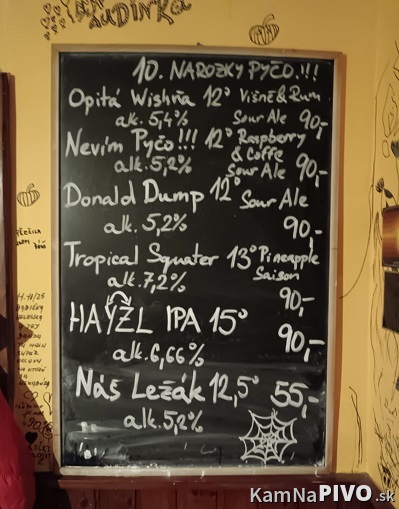 10. NAROZKY PYČO.!!!
Opitá Wishňa 12° Višně & Rum
alk. 5,4% Sour Ale 90,-
Nevím Pyčo!!! 12° Raspberry
& Coffe
alk. 5,2% Sour Ale 90,-
Donald Dump 12° Sour Ale
alk. 5,2% 90,-
Tropical Squater 13° Pineapple
Saison
alk. 7,2% 90,-
HAYZL IPA 15° 90,-
alk. 6,66%
Náš Ležák 12,5° 55,-
alk. 5,2%
KamNaPIVO.sk